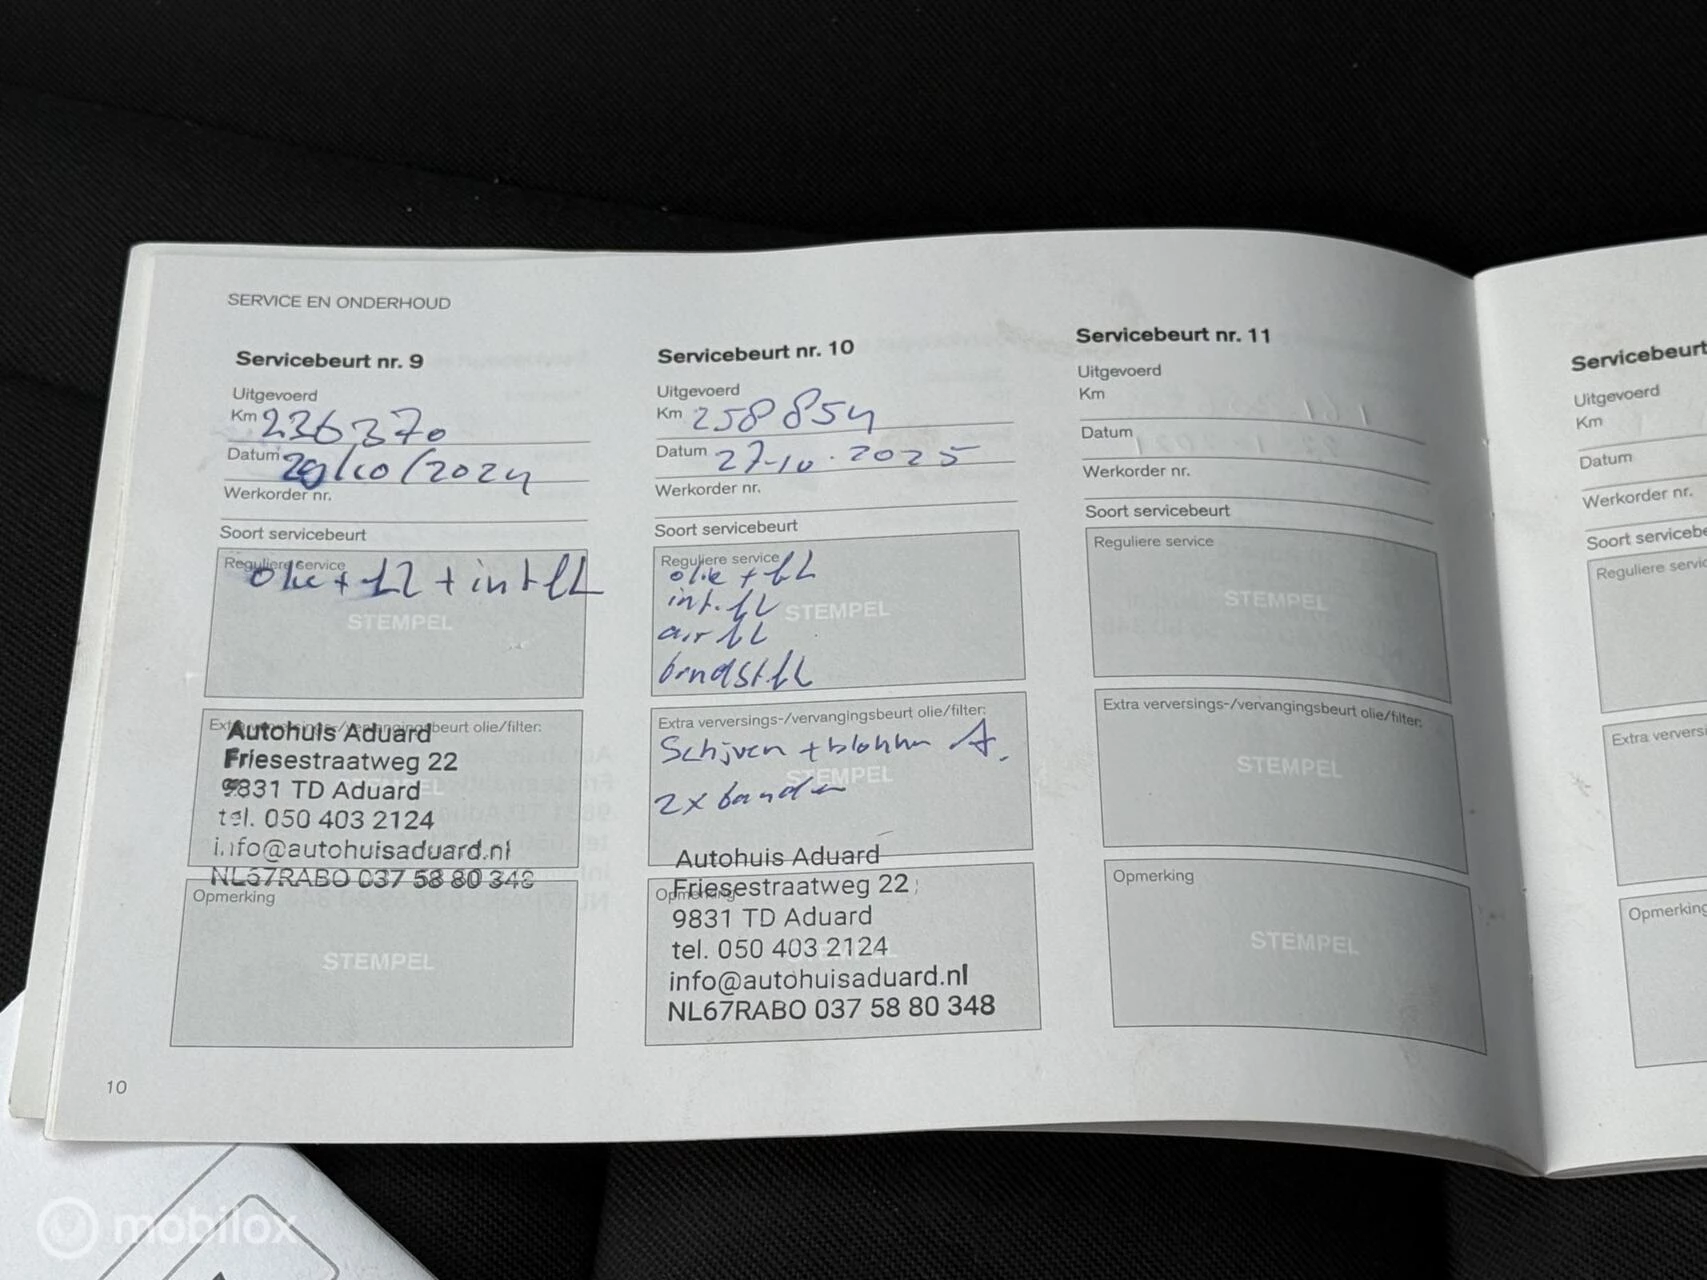 SERVICE EN ONDERHOUD
Servicebeurt nr. 9
Uitgevoerd
Km 236370
Datum 29/10/2024
Werkorder nr.
Soort servicebeurt
Reguliere service
olie + fL + int fL
STEMPEL
Extra verversings-/vervangingsbeurt olie/filter:
Autohuis Aduard
Friesestraatweg 22
9831 TD Aduard
tel. 050 403 2124
info@autohuisaduard.nl
NL67RABO 037 58 80 348
Opmerking
STEMPEL
10
Servicebeurt nr. 10
Uitgevoerd
Km 258854
Datum 27-10-2025
Werkorder nr.
Soort servicebeurt
Reguliere service
olie + fL
int. fL
STEMPEL
air fL
brndst.fL
Extra verversings-/vervangingsbeurt olie/filter:
Schijven + blokken A.
STEMPEL
2x banden
Autohuis Aduard
Friesestraatweg 22
Opmerking
9831 TD Aduard
tel. 050 403 2124
info@autohuisaduard.nl
NL67RABO 037 58 80 348
Servicebeurt nr. 11
Uitgevoerd
Km
Datum
Werkorder nr.
Soort servicebeurt
Reguliere service
STEMPEL
Extra verversings-/vervangingsbeurt olie/filter:
STEMPEL
Opmerking
STEMPEL
Servicebeurt
Uitgevoerd
Km
Datum
Werkorder nr.
Soort servicebe
Reguliere servic
Extra versversi
Opmerking
mobilox